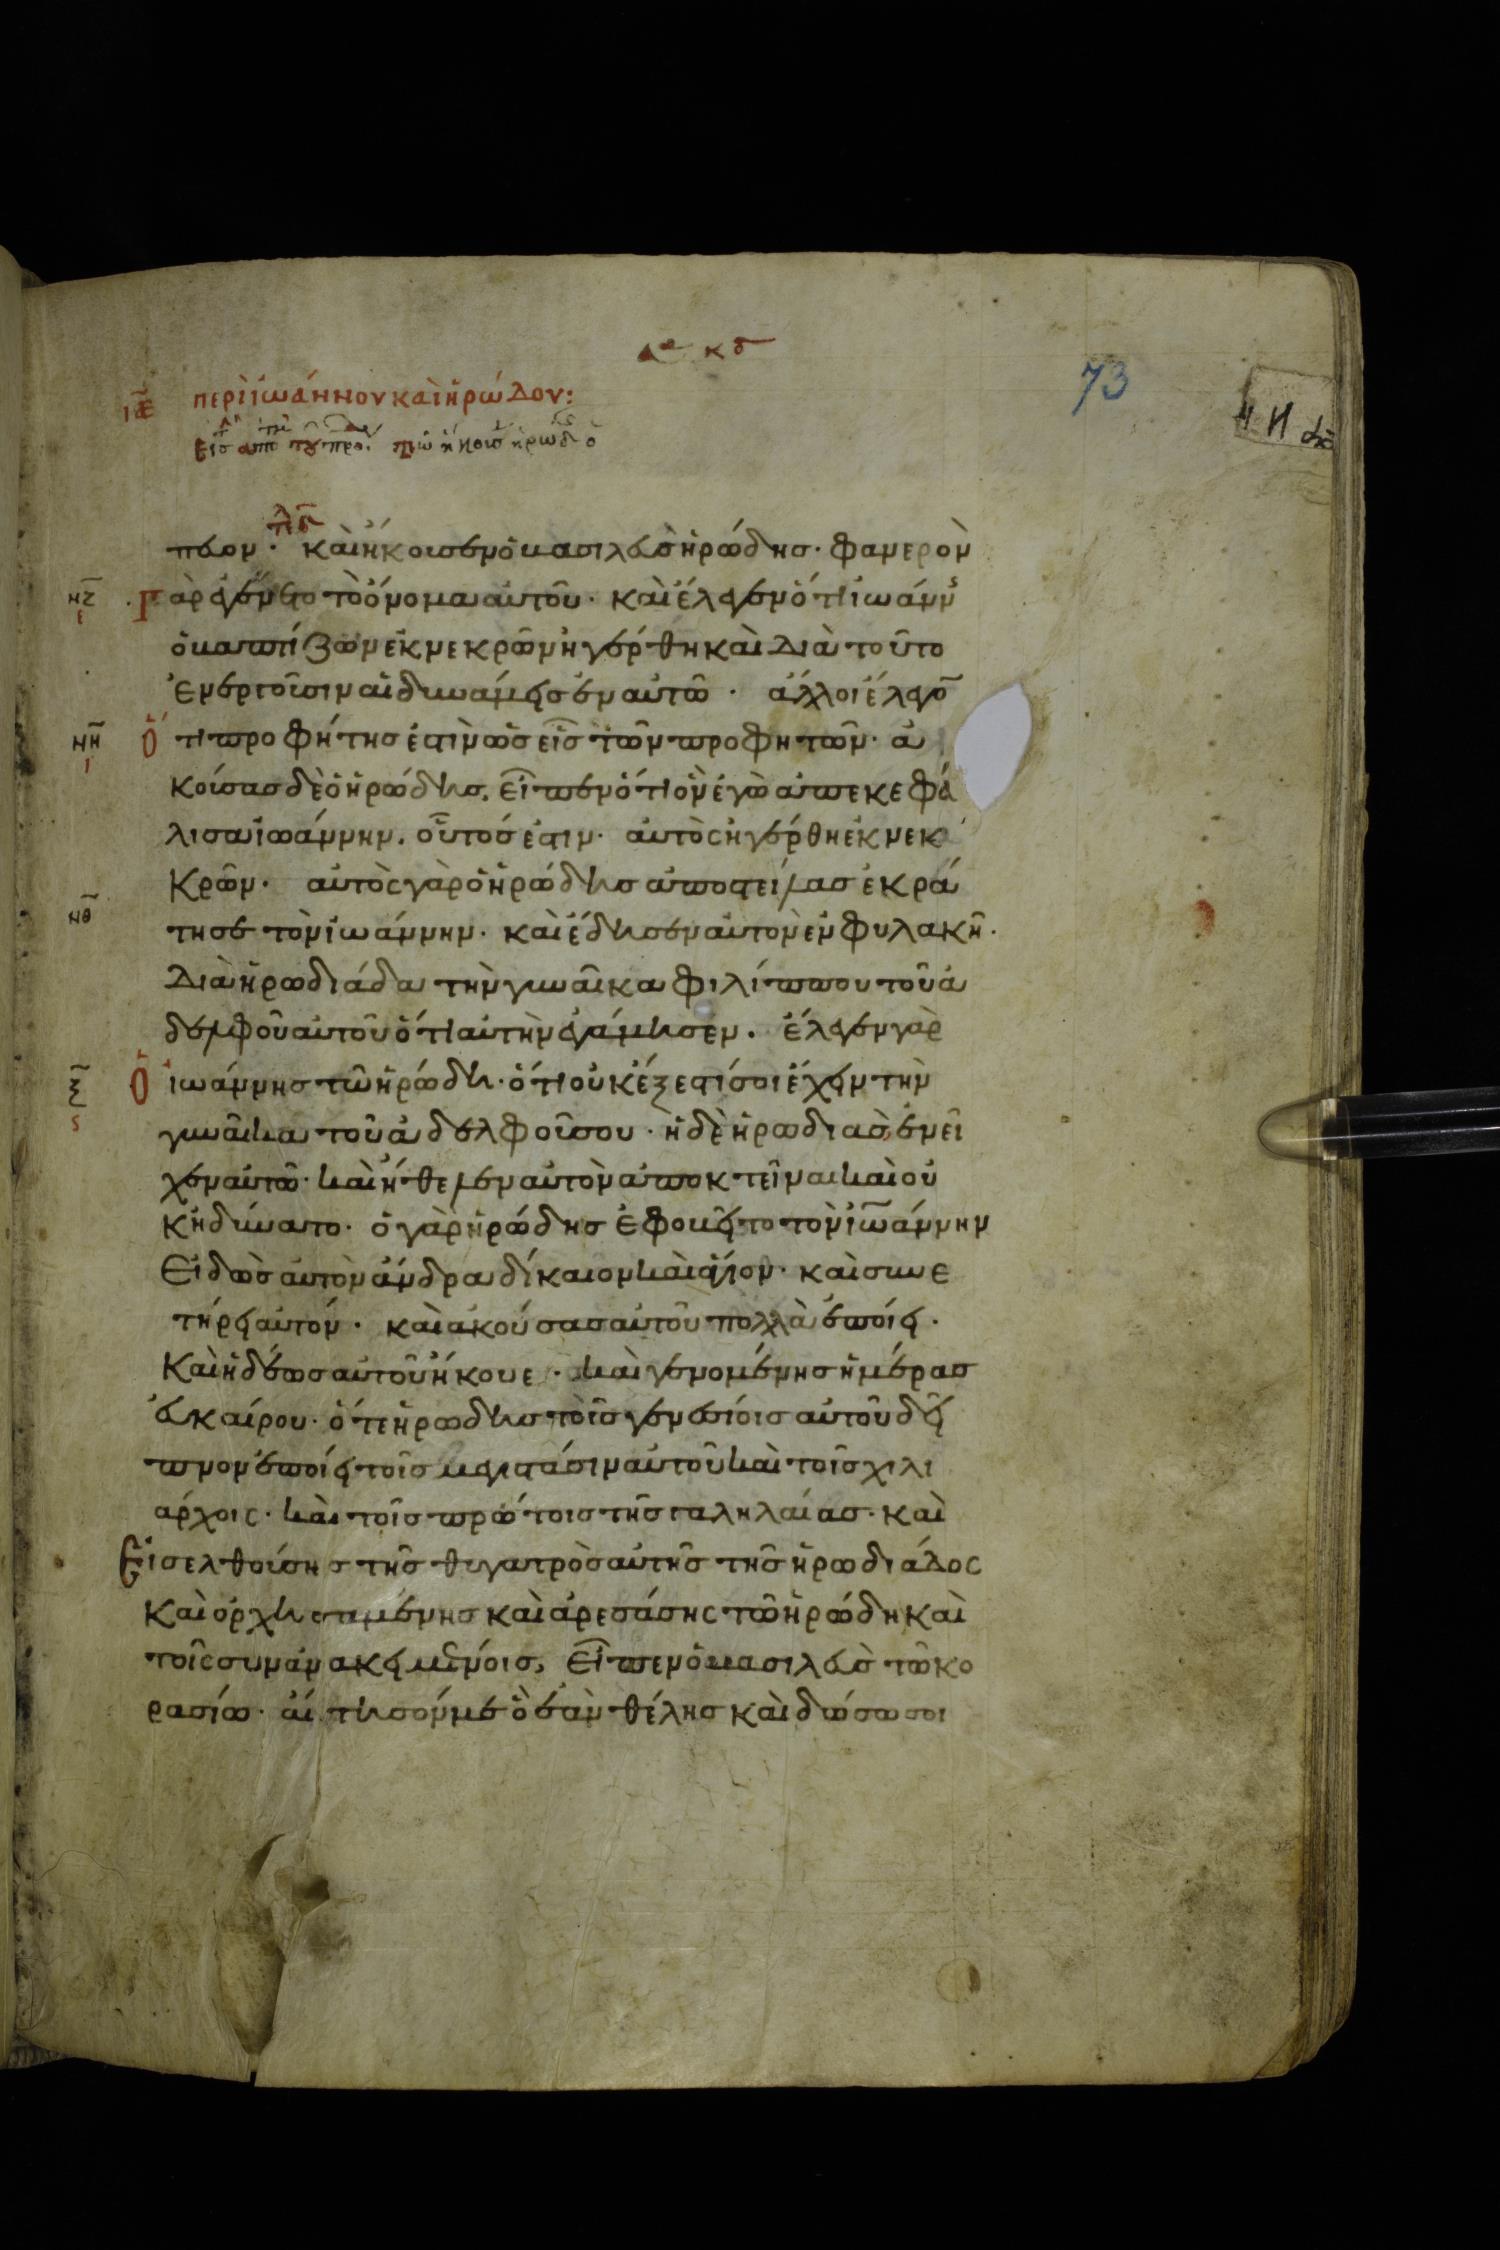 73
ιε περὶ ἰωάννου καὶ ἡρώδου:
πεον· καὶ ἤκουσεν ὁ βασιλεὺς ἡρώδης· φανερὸν
νζ γὰρ ἐγένετο τὸ ὄνομα αὐτοῦ· καὶ ἔλεγεν ὅτι ἰωάνν
ὁ βαπτίζων ἐκ νεκρῶν ἠγέρθη καὶ διὰ τοῦτο
ἐνεργοῦσιν αἱ δυνάμεις ἐν αὐτῶ· ἄλλοι ἔλεγο
νη ὅ τι προφήτης ἐστὶν ὡς εἷς τῶν προφητῶν· ἀ
κούσας δὲ ὁ ἡρώδης, εἶπεν ὅτι ὃν ἐγὼ ἀπεκεφά
λισα ἰωάννην. οὗτός ἐστιν· αὐτὸς ἠγέρθη ἐκ νεκ
κρῶν· αὐτὸς γὰρ ὁ ἡρώδης ἀποστείλας ἐκρά
νθ τησε τὸν ἰωάννην· καὶ ἔδησεν αὐτὸν ἐν φυλακῆ·
διὰ ἡρωδιάδα τὴν γυναῖκα φιλίππου τοῦ ἀ
δελφοῦ αὐτοῦ ὅτι αὐτὴν ἐγάμησεν. ἔλεγεν γὰρ
ξ ὁ ἰωάννης τῶ ἡρώδη· ὅτι οὐκ ἔξεστί σοι ἔχειν τὴν
γυναῖκα τοῦ ἀδελφοῦ σου· ἡ δὲ ἡρωδιὰς ἐνεῖ
χεν αὐτῶ· καὶ ἤθελεν αὐτὸν ἀποκτεῖναι καὶ οὐ
κ ἠδύνατο· ὁ γὰρ ἡρώδης ἐφοβεῖτο τὸν ἰωάννην
εἰδὼς αὐτὸν ἄνδρα δίκαιον καὶ ἅγιον· καὶ συνε
τήρει αὐτόν· καὶ ἀκούσας αὐτοῦ πολλὰ ἐποίει·
καὶ ἡδέως αὐτοῦ ἤκουε· καὶ γενομένης ἡμέρας
εὐκαίρου· ὅτε ἡρώδης τοῖς γενεσίοις αὐτοῦ δεῖ
πνον ἐποίει τοῖς μεγιστάσιν αὐτοῦ καὶ τοῖς χιλι
άρχοις· καὶ τοῖς πρώτοις τῆς γαληλαίας· καὶ
εἰσελθούσης τῆς θυγατρὸς αὐτῆς τῆς ἡρωδιάδος
καὶ ὀρχησαμένης καὶ ἀρεσάσης τῶ ἡρώδη καὶ
τοῖς συνανακειμένοις, εἶπεν ὁ βασιλεὺς τῶ κο
ρασίω· αἴτησόν με ὃ ἐὰν θέλης καὶ δώσω σοι